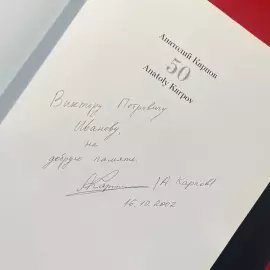 Анатолий Карпов
50
Anatoly Karpov
Виктору Петровичу
Иванову,
на
добрую память.
/А. Карпов/
16.12.2002